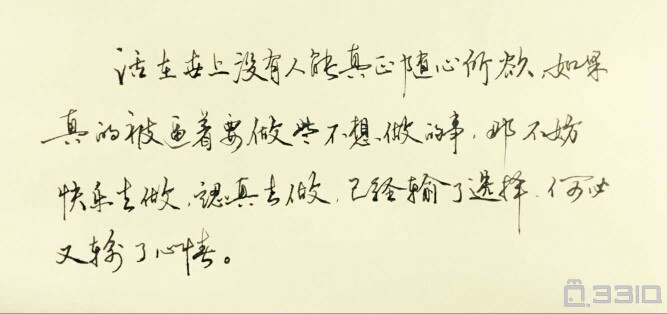 活在世上没有人能真正随心所欲、如果
真的被逼着要做些不想做的事，那不妨
快乐去做，認真去做，已经输了选择，何必
又输了心情。
33IQ